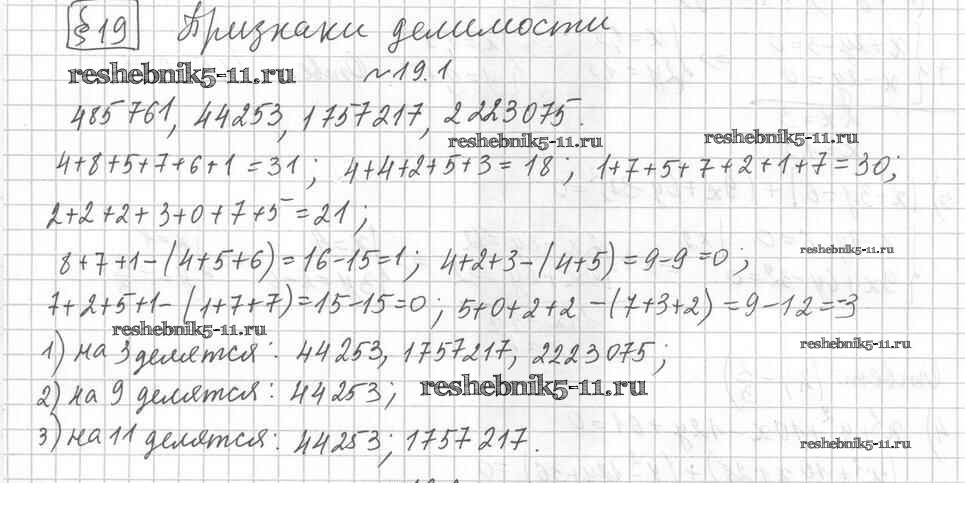 §19 Признаки делимости
reshebnik5-11.ru №19.1
485761, 44253, 1757217, 2223075.
reshebnik5-11.ru reshebnik5-11.ru
4+8+5+7+6+1=31; 4+4+2+5+3=18; 1+7+5+7+2+1+7=30;
2+2+2+3+0+7+5=21;
reshebnik5-11.ru
8+7+1-(4+5+6)=16-15=1; 4+2+3-(4+5)=9-9=0;
7+2+5+1-(1+7+7)=15-15=0; 5+0+2+2-(7+3+2)=9-12=-3
reshebnik5-11.ru
reshebnik5-11.ru
1) на 3 делятся: 44253, 1757217, 2223075;
reshebnik5-11.ru
2) на 9 делятся: 44253;
3) на 11 делятся: 44253; 1757217.
reshebnik5-11.ru